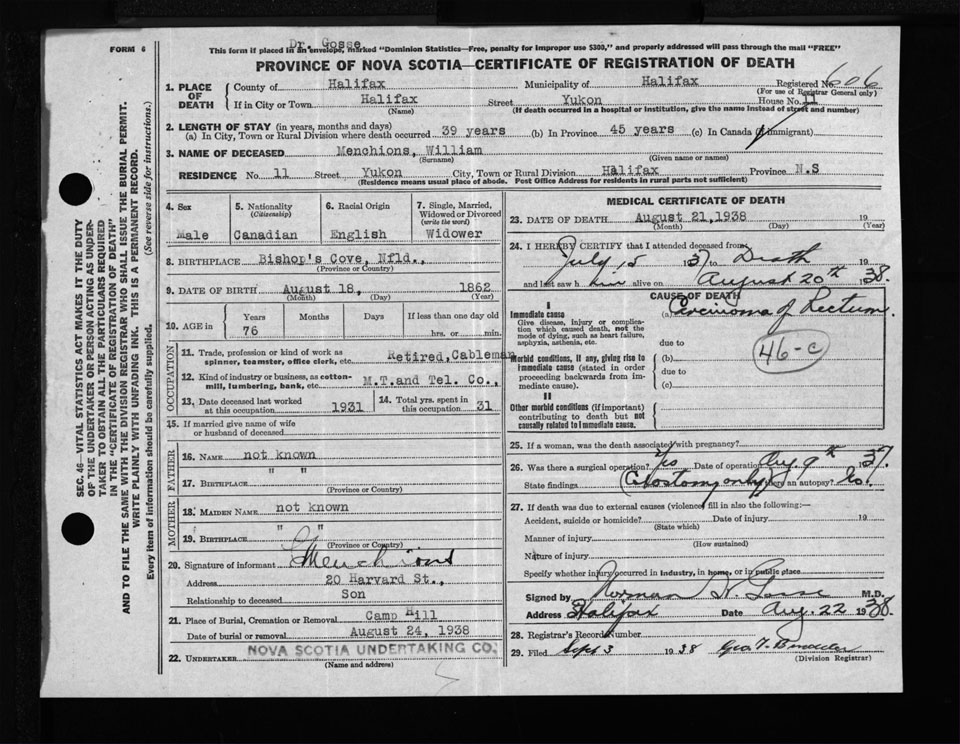 FORM 6
Dr. Gosse
This form if placed in an envelope, marked "Dominion Statistics—Free, penalty for improper use $300," and properly addressed will pass through the mail "FREE"
PROVINCE OF NOVA SCOTIA—CERTIFICATE OF REGISTRATION OF DEATH
1. PLACE OF DEATH { County of Halifax Municipality of Halifax Registered No. 606
(For use of Registrar General only)
If in City or Town Halifax Street Yukon House No. 11
(Name) (If death occurred in a hospital or institution, give the name instead of street and number)
2. LENGTH OF STAY (in years, months and days)
(a) In City, Town or Rural Division where death occurred 39 years (b) In Province 45 years (c) In Canada (if immigrant)
3. NAME OF DECEASED Menchions, William
(Surname) (Given name or names)
RESIDENCE No. 11 Street Yukon City, Town or Rural Division Halifax Province N.S
(Residence means usual place of abode. Post Office Address for residents in rural parts not sufficient)
4. Sex 5. Nationality (Citizenship) 6. Racial Origin 7. Single, Married, Widowed or Divorced (write the word)
Male Canadian English Widower
8. BIRTHPLACE Bishop's Cove, Nfld.,
(Province or Country)
9. DATE OF BIRTH August 18, 1862
(Month) (Day) (Year)
10. AGE in { Years Months Days If less than one day old
76 hrs. or min.
OCCUPATION
11. Trade, profession or kind of work as spinner, teamster, office clerk, etc. Retired, Cableman
12. Kind of industry or business, as cotton-mill, lumbering, bank, etc. M.T.and Tel. Co.,
13. Date deceased last worked at this occupation 1931 14. Total yrs. spent in this occupation 31
15. If married give name of wife or husband of deceased
FATHER
16. NAME not known
17. BIRTHPLACE " "
(Province or Country)
MOTHER
18. MAIDEN NAME not known
19. BIRTHPLACE " "
(Province or Country)
20. Signature of informant Menchions
Address 20 Harvard St.,
Relationship to deceased Son
21. Place of Burial, Cremation or Removal Camp Hill
Date of burial or removal August 24, 1938
22. UNDERTAKER NOVA SCOTIA UNDERTAKING CO.
(Name and address)
MEDICAL CERTIFICATE OF DEATH
23. DATE OF DEATH August 21,1938 19
(Month) (Day) (Year)
24. I HEREBY CERTIFY that I attended deceased from
July 15 1937 to Death 19
and last saw him alive on August 20th 1938.
CAUSE OF DEATH
I
Immediate cause (a) Carcinoma of Rectum.
Give disease, injury or complication which caused death, not the mode of dying, such as heart failure, asphyxia, asthenia, etc.
due to
46-C
Morbid conditions, if any, giving rise to immediate cause (stated in order proceeding backwards from immediate cause).
(b)
due to
(c)
II
Other morbid conditions (if important) contributing to death but not causally related to immediate cause.
25. If a woman, was the death associated with pregnancy?
26. Was there a surgical operation? Yes Date of operation Aug 9th 1937.
State findings Colostomy only Was there an autopsy? No.
27. If death was due to external causes (violence) fill in also the following:—
Accident, suicide or homicide? Date of injury 19
(State which)
Manner of injury
(How sustained)
Nature of injury
Specify whether injury occurred in industry, in home, or in public place
Signed by Norman H. Gosse M.D.
Address Halifax Date Aug. 22 1938.
28. Registrar's Record Number
29. Filed Sept 3 1938
(Division Registrar)
SEC. 46—VITAL STATISTICS ACT MAKES IT THE DUTY
OF THE UNDERTAKER OR PERSON ACTING AS UNDER-
TAKER TO OBTAIN ALL THE PARTICULARS REQUIRED
IN THE "CERTIFICATE OF REGISTRATION OF DEATH"
AND TO FILE THE SAME WITH THE DIVISION REGISTRAR WHO SHALL ISSUE THE BURIAL PERMIT.
WRITE PLAINLY WITH UNFADING INK. THIS IS A PERMANENT RECORD.
Every item of information should be carefully supplied. (See reverse side for instructions.)